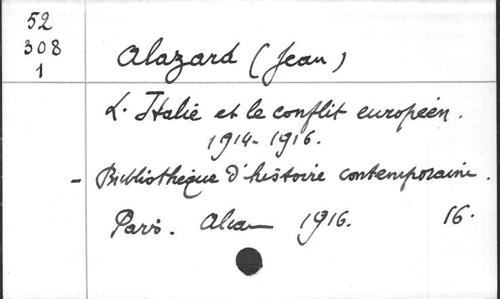 52
308
1
Alazard (Jean)
L'Italie et le conflit européen.
1914-1916.
- Bibliothèque d'histoire contemporaine.
Paris. Alcan 1916. 16.